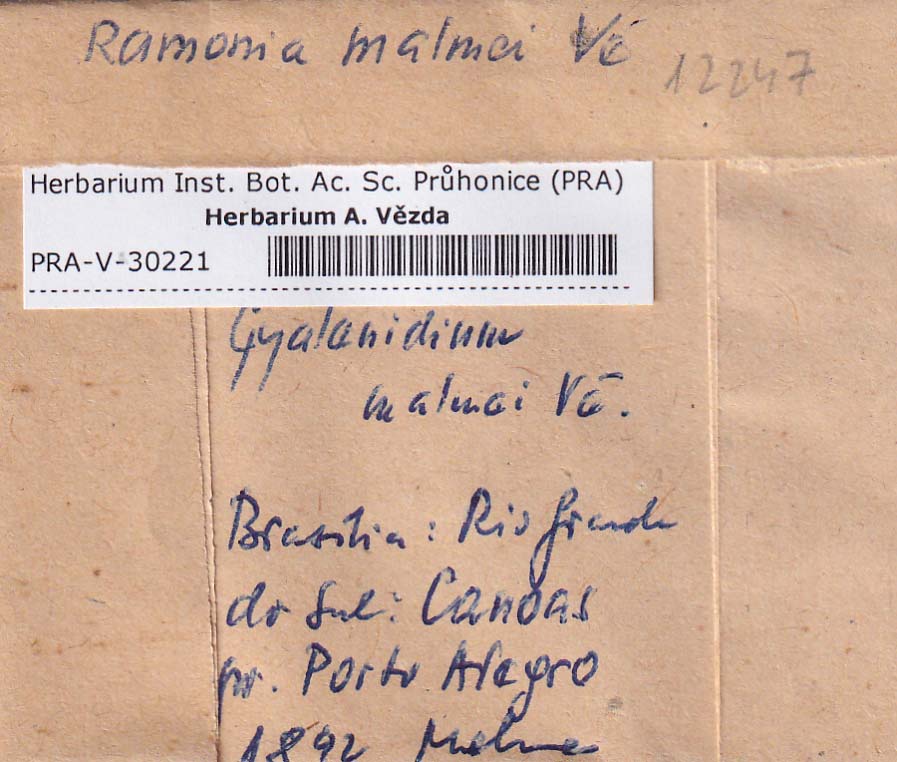 Ramonia malmei Vě
12247
Herbarium Inst. Bot. Ac. Sc. Průhonice (PRA)
Herbarium A. Vězda
PRA-V-30221
Gyalectidium
malmei Vě.
Brasilia: Rio Grande
do Sul: Canoas
pr. Porto Alegro
1892 Malme